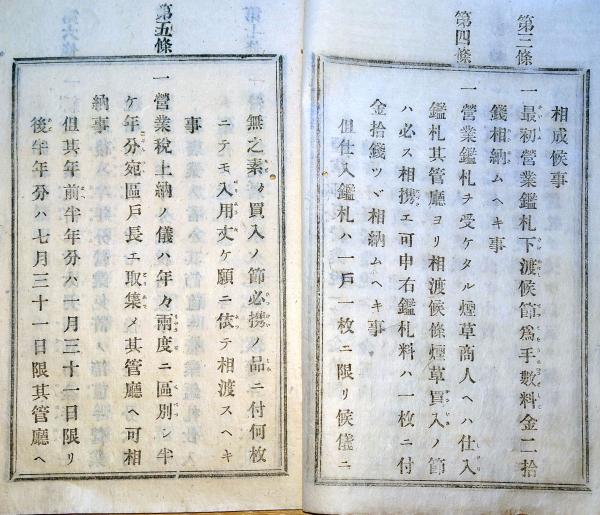 相成候事
第三條
一最初營業鑑札下渡候節爲手數料金二拾
錢相納ムヘキ事
第四條
一營業鑑札ヲ受ケタル煙草商人ヘハ仕入
鑑札其管廳ヨリ相渡候條煙草買入ノ節
ハ必ス相携エ可申右鑑札料ハ一枚ニ付
金拾錢ツヽ相納ムヘキ事
但仕入鑑札ハ一戸一枚ニ限リ候儀ニ
無之素ヨリ買入ノ節必携ノ品ニ付何枚
ニテモ入用丈ケ願ニ依テ相渡スヘキ
事
第五條
一營業稅上納ノ儀ハ年々兩度ニ區別シ半
ケ年分宛區戸長エ取集メ其管廳ヘ可相
納事
但其年前半年分ハ一月三十一日限リ
後半年分ハ七月三十一日限其管廳ヘ